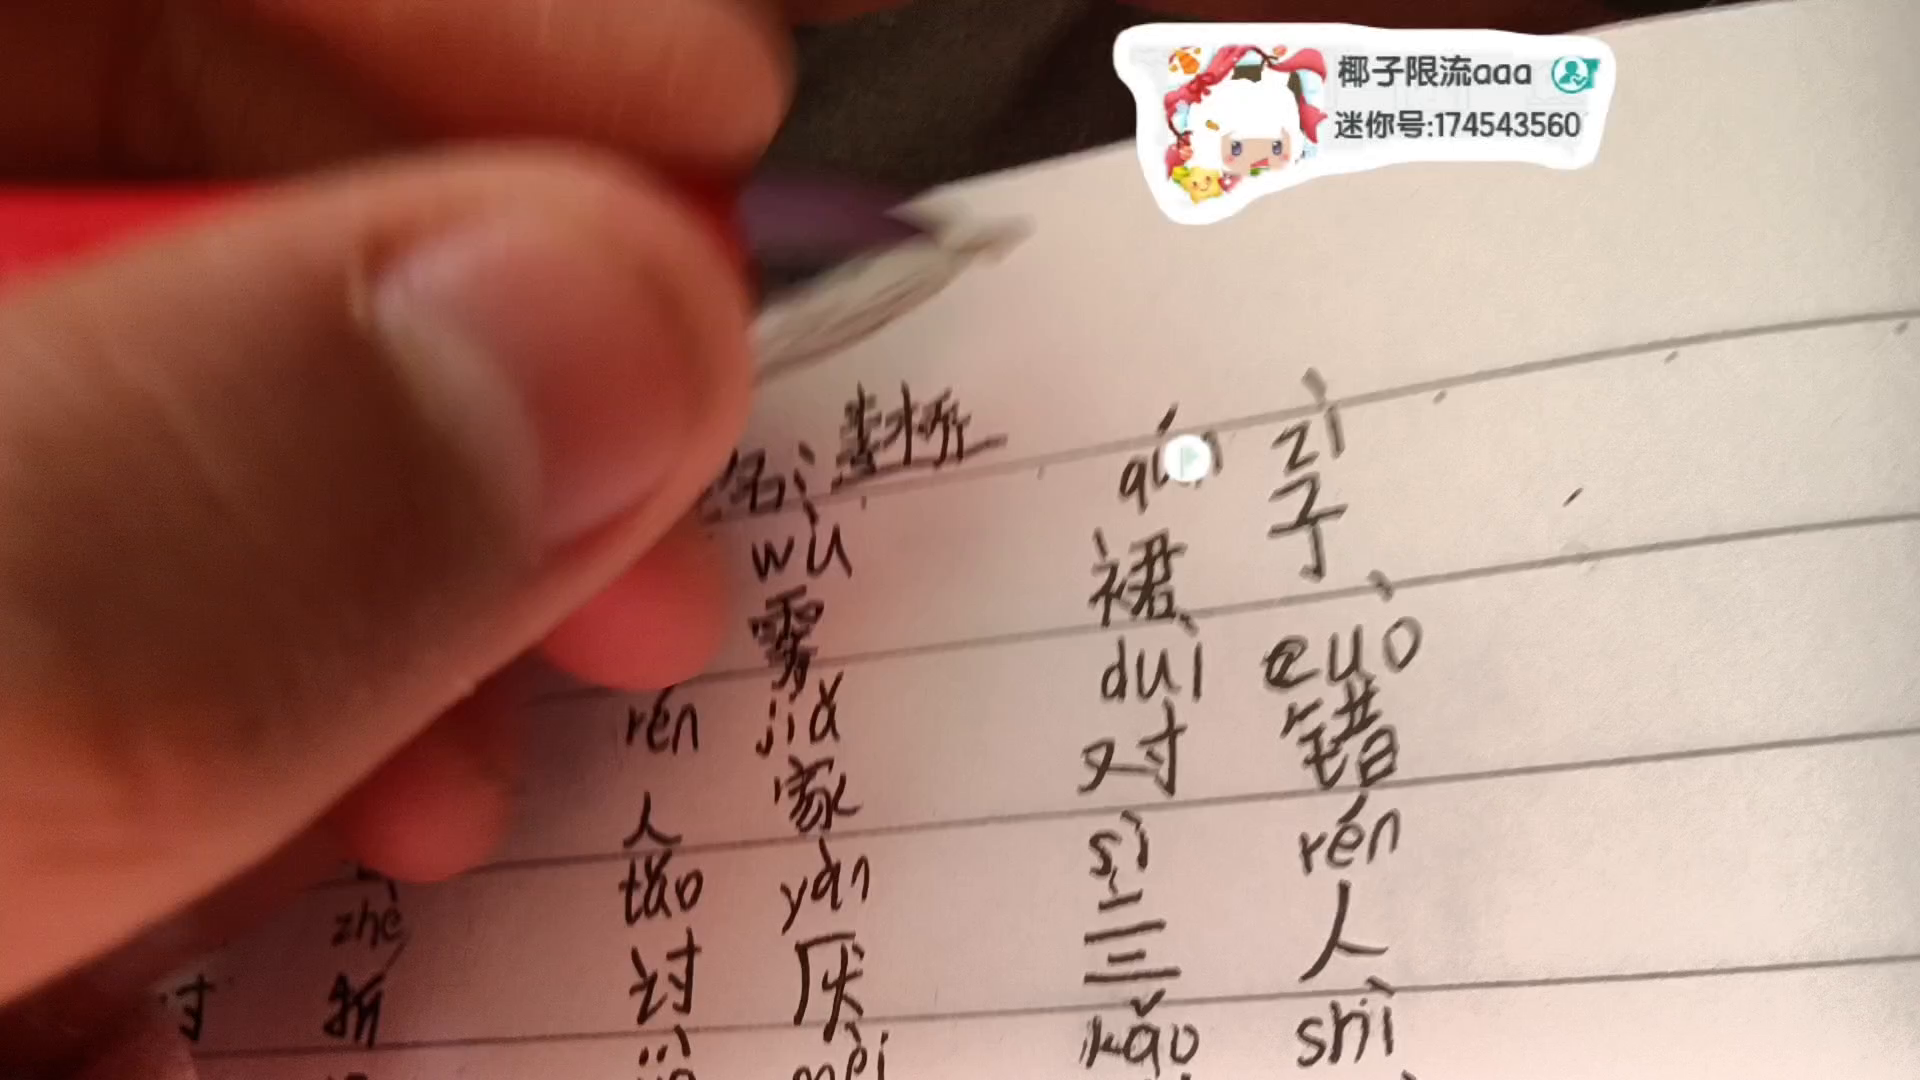 椰子限流aaa
迷你号:174543560
名:娄桥
wù qún zì
雾 裙子
rén jiā duì cuò
人家 对错
zhé tǎo yàn sì rén
折 讨厌 三人
kǎo shì